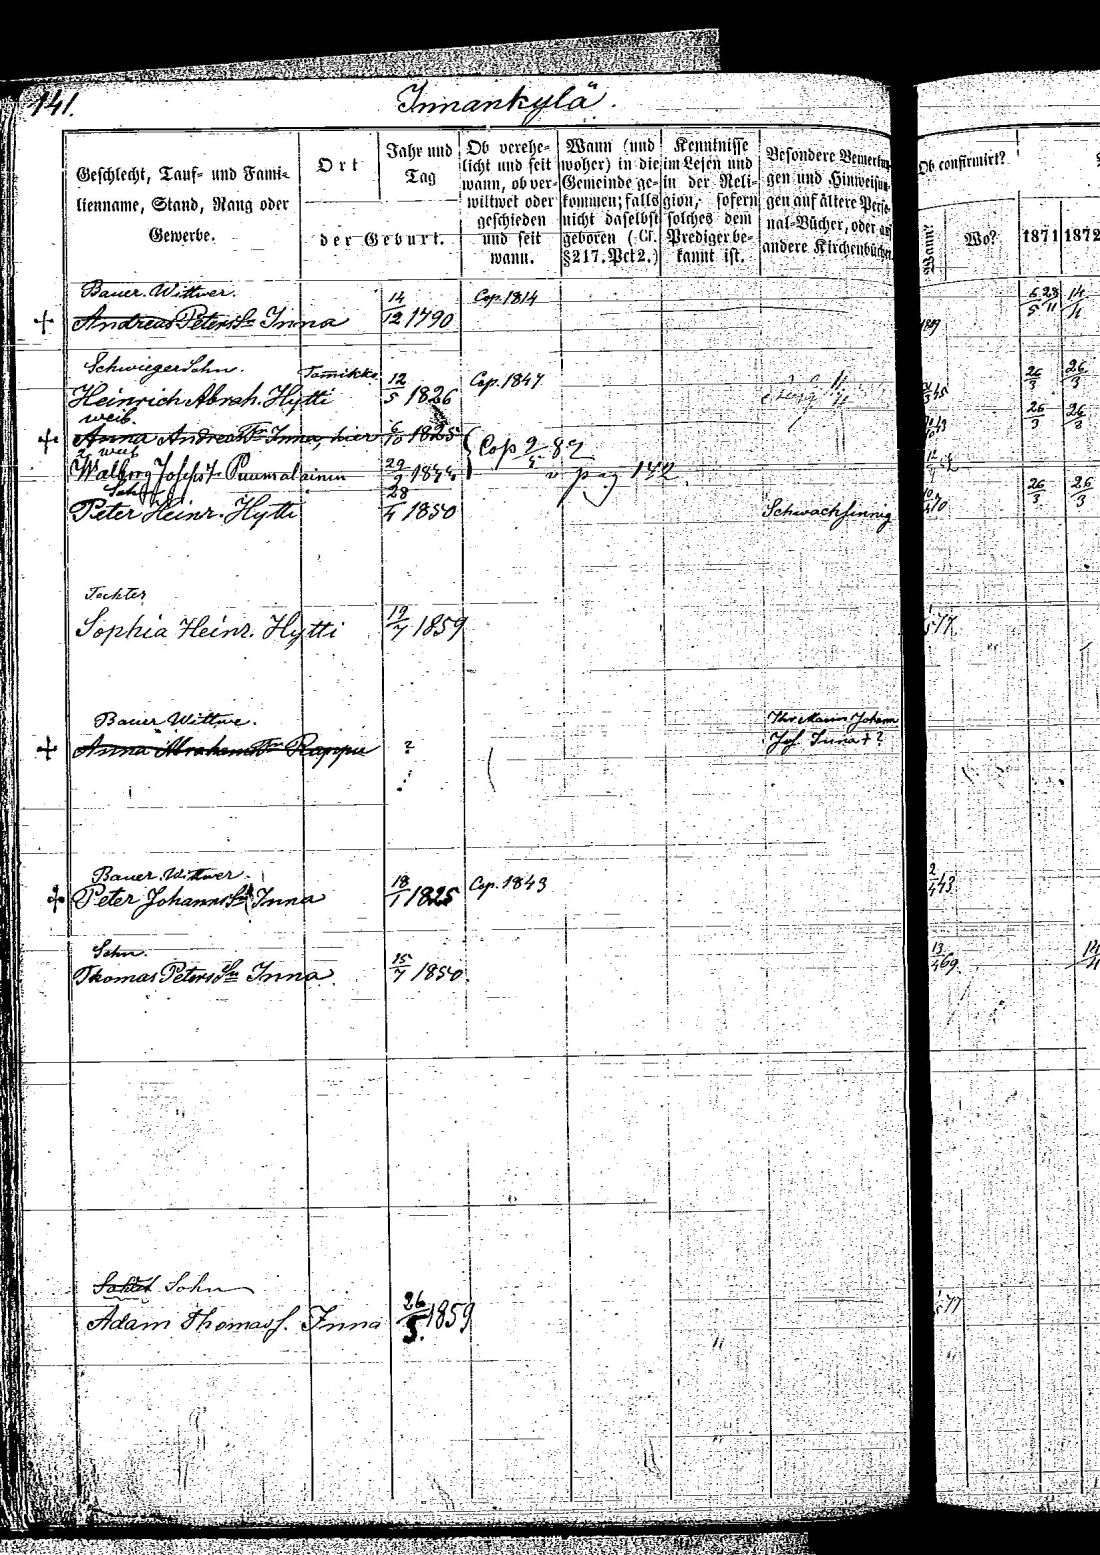 141.
Innankylä.
Geschlecht, Tauf- und Fami-
lienname, Stand, Rang oder
Gewerbe.
Ort
der Geburt.
Jahr und
Tag
Ob verehe-
licht und seit
wann, ob ver-
wiltwet oder
geschieden
und seit
wann.
Wann (und
woher) in die
Gemeinde ge-
kommen; falls
nicht daselbst
geboren (Cf.
§217. Pct 2.)
Kenntnisse
im Lesen und
in der Reli-
gion, sofern
solches dem
Prediger be-
kannt ist.
Besondere Bemerkun-
gen und Hinweisun-
gen auf ältere Perso-
nal-Bücher, oder auf
andere Kirchenbücher.
Ob confirmirt?
Wann?
Wo?
1871
1872
Bauer. Wittwer.
Andreas Peters Sn Inna 14/12 1790 Cop. 1814
SchwiegerSohn.
Heinrich Abrah. Hytti Tamikko 12/5 1826 Cop. 1847 26/3 26/3
Weib.
Anna Andreas Tr Inna, hier 6/10 1825 26/3 26/3
2. Weib
Walborg Josephs T. Puumalainen Cop 2/5 82
v pag 142
Sohn
Peter Heinr. Hytti 28/4 1850 Schwachsinnig 26/3 26/3
Tochter
Sophia Heinr. Hytti 19/7 1859 77
Bauer Wittwe.
Anna Abrahams Tr Rappu ? Ihr Mann Johann
Jos. Inna + ?
Bauer. Wittwer.
Peter Johanns Sn Inna 18/1 1825 Cop. 1843 2/4 43
Sohn.
Thomas Peters Sn Inna. 15/7 1850. 13/4 69.
Sohn
Adam Thomas s. Inna 26/5. 1859 77